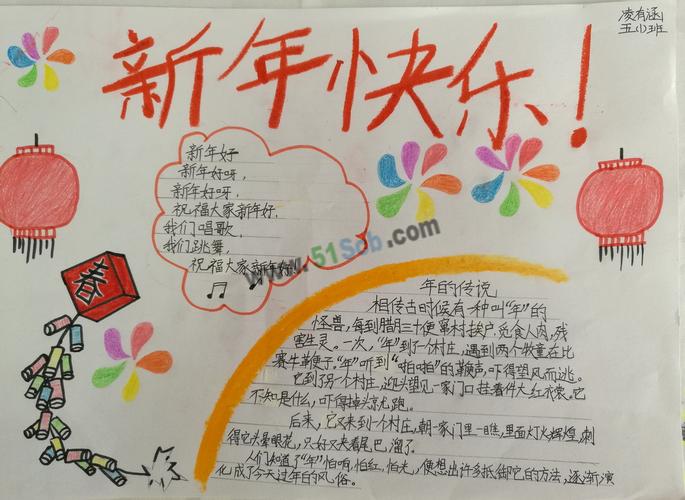 凌有涵
五(1)班
新年快乐!
新年好
新年好呀,
新年好呀,
祝福大家新年好.
我们唱歌,
我们跳舞,
祝福大家新年好!
www.51Sob.com
春
年的传说
相传古时候有一种叫“年”的
怪兽,每到腊月三十便窜村挨户,觅食人肉,残
害生灵。一次,“年”到了一个村庄,遇到两个牧童在比
赛牛鞭子。“年”听到“啪啪”的鞭声,吓得望风而逃。
它到了另一个村庄,迎头望见一家门口挂着件大红衣裳。它
不知是什么,吓得掉头就跑。
后来,它又来到一个村庄,朝一家门里一瞧,里面灯火辉煌,刺
得它头晕眼花,只好又夹着尾巴溜了.
人们知道了“年”怕响,怕红,怕光,便想出许多抵御它的方法,逐渐演
化成了今天过年的风俗。